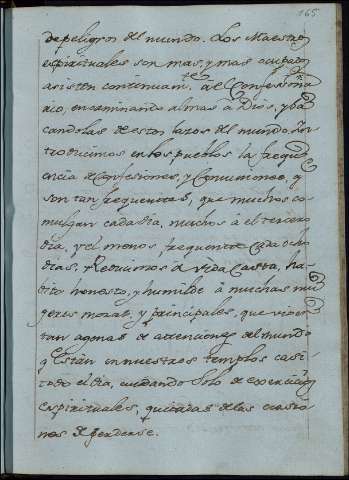 165
de peligros del mundo. Los Maestros
espirituales son mas, y mas ocupados
asisten continuam.te al Confessona
rio, encaminando almas á Dios, y sa
candolas de estos lazos del mundo. Yn
troducimos en los pueblos la frequ
encia de Confesiones, y Comuniones, y
son tan frequentes, que muchos co
mulgan cada dia, muchos á el tercero
dia, y el menos, frequente cada ocho
dias, y Reducimos á vida Casta, ha
bito honesto, y humilde á muchas mu
geres mozas, y principales, que vivi
tan agenas de atenciones del mundo
q estan en nuestros templos casi
todo el dia, cuidando solo de exercicios
espirituales, quitadas de las ocasio
nes de perderse.